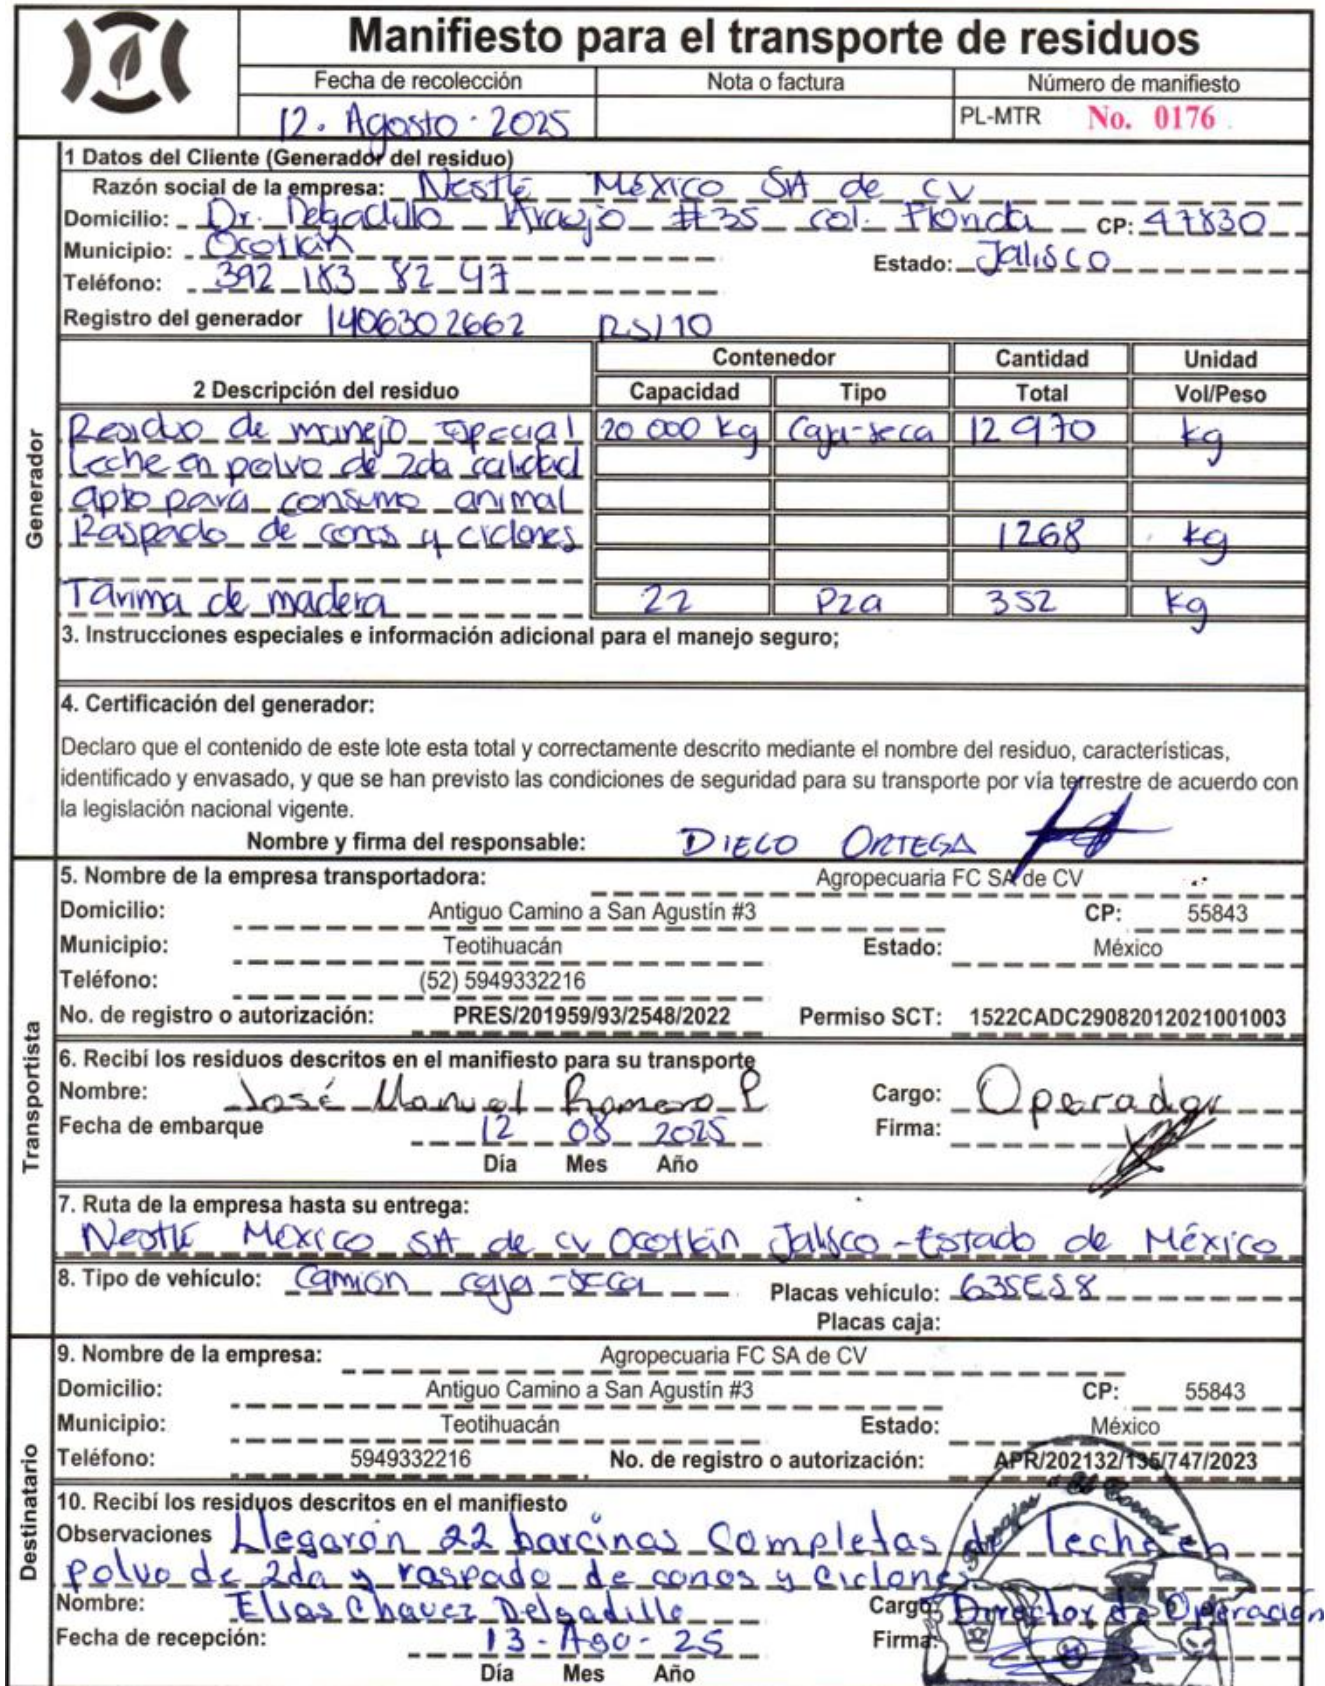 Manifiesto para el transporte de residuos
Fecha de recolección Nota o factura Número de manifiesto
12. Agosto. 2025 PL-MTR No. 0176
1 Datos del Cliente (Generador del residuo)
Razón social de la empresa: Nestlé México SA de CV
Domicilio: Dr. Delgadillo Araujo #35 col. Florida CP: 47830
Municipio: Ocotlán
Estado: Jalisco
Teléfono: 392 183 82 97
Registro del generador 1406302662 RS/10
Contenedor Cantidad Unidad
2 Descripción del residuo Capacidad Tipo Total Vol/Peso
Residuo de manejo especial 20 000 kg Caja-seca 12 970 kg
Leche en polvo de 2da calidad
apto para consumo animal
Raspado de conos y ciclones 1268 kg
Tarima de madera 22 Pza 352 kg
3. Instrucciones especiales e información adicional para el manejo seguro;
4. Certificación del generador:
Declaro que el contenido de este lote esta total y correctamente descrito mediante el nombre del residuo, características,
identificado y envasado, y que se han previsto las condiciones de seguridad para su transporte por vía terrestre de acuerdo con
la legislación nacional vigente.
Nombre y firma del responsable: DIEGO ORTEGA
Generador
5. Nombre de la empresa transportadora: Agropecuaria FC SA de CV
Domicilio: Antiguo Camino a San Agustín #3 CP: 55843
Municipio: Teotihuacán Estado: México
Teléfono: (52) 5949332216
No. de registro o autorización: PRES/201959/93/2548/2022 Permiso SCT: 1522CADC29082012021001003
6. Recibí los residuos descritos en el manifiesto para su transporte
Nombre: José Manuel Romero P Cargo: Operador
Fecha de embarque 12 08 2025 Firma:
Día Mes Año
7. Ruta de la empresa hasta su entrega:
Nestlé México SA de CV Ocotlán Jalisco - Estado de México
8. Tipo de vehículo: Camión caja-seca Placas vehículo: 635ES8
Placas caja:
Transportista
9. Nombre de la empresa: Agropecuaria FC SA de CV
Domicilio: Antiguo Camino a San Agustín #3 CP: 55843
Municipio: Teotihuacán Estado: México
Teléfono: 5949332216 No. de registro o autorización: APR/202132/135/747/2023
10. Recibí los residuos descritos en el manifiesto
Observaciones Llegarón 22 barcinas Completas de leche en
polvo de 2da y raspado de conos y ciclones
Nombre: Elias Chavez Delgadillo Cargo: Director de Operación
Fecha de recepción: 13-Ago-25 Firma:
Día Mes Año
Destinatario
Forrajes El Corral